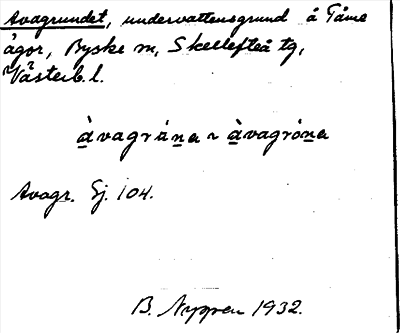 Avagrundet, undervattensgrund å Tåme
ågor, Byske sn, Skellefteå tg,
Västerb. l.
àvagrúṉa ~ àvagróṉa
Avagr. Sj. 104.
B. Nygren 1932.